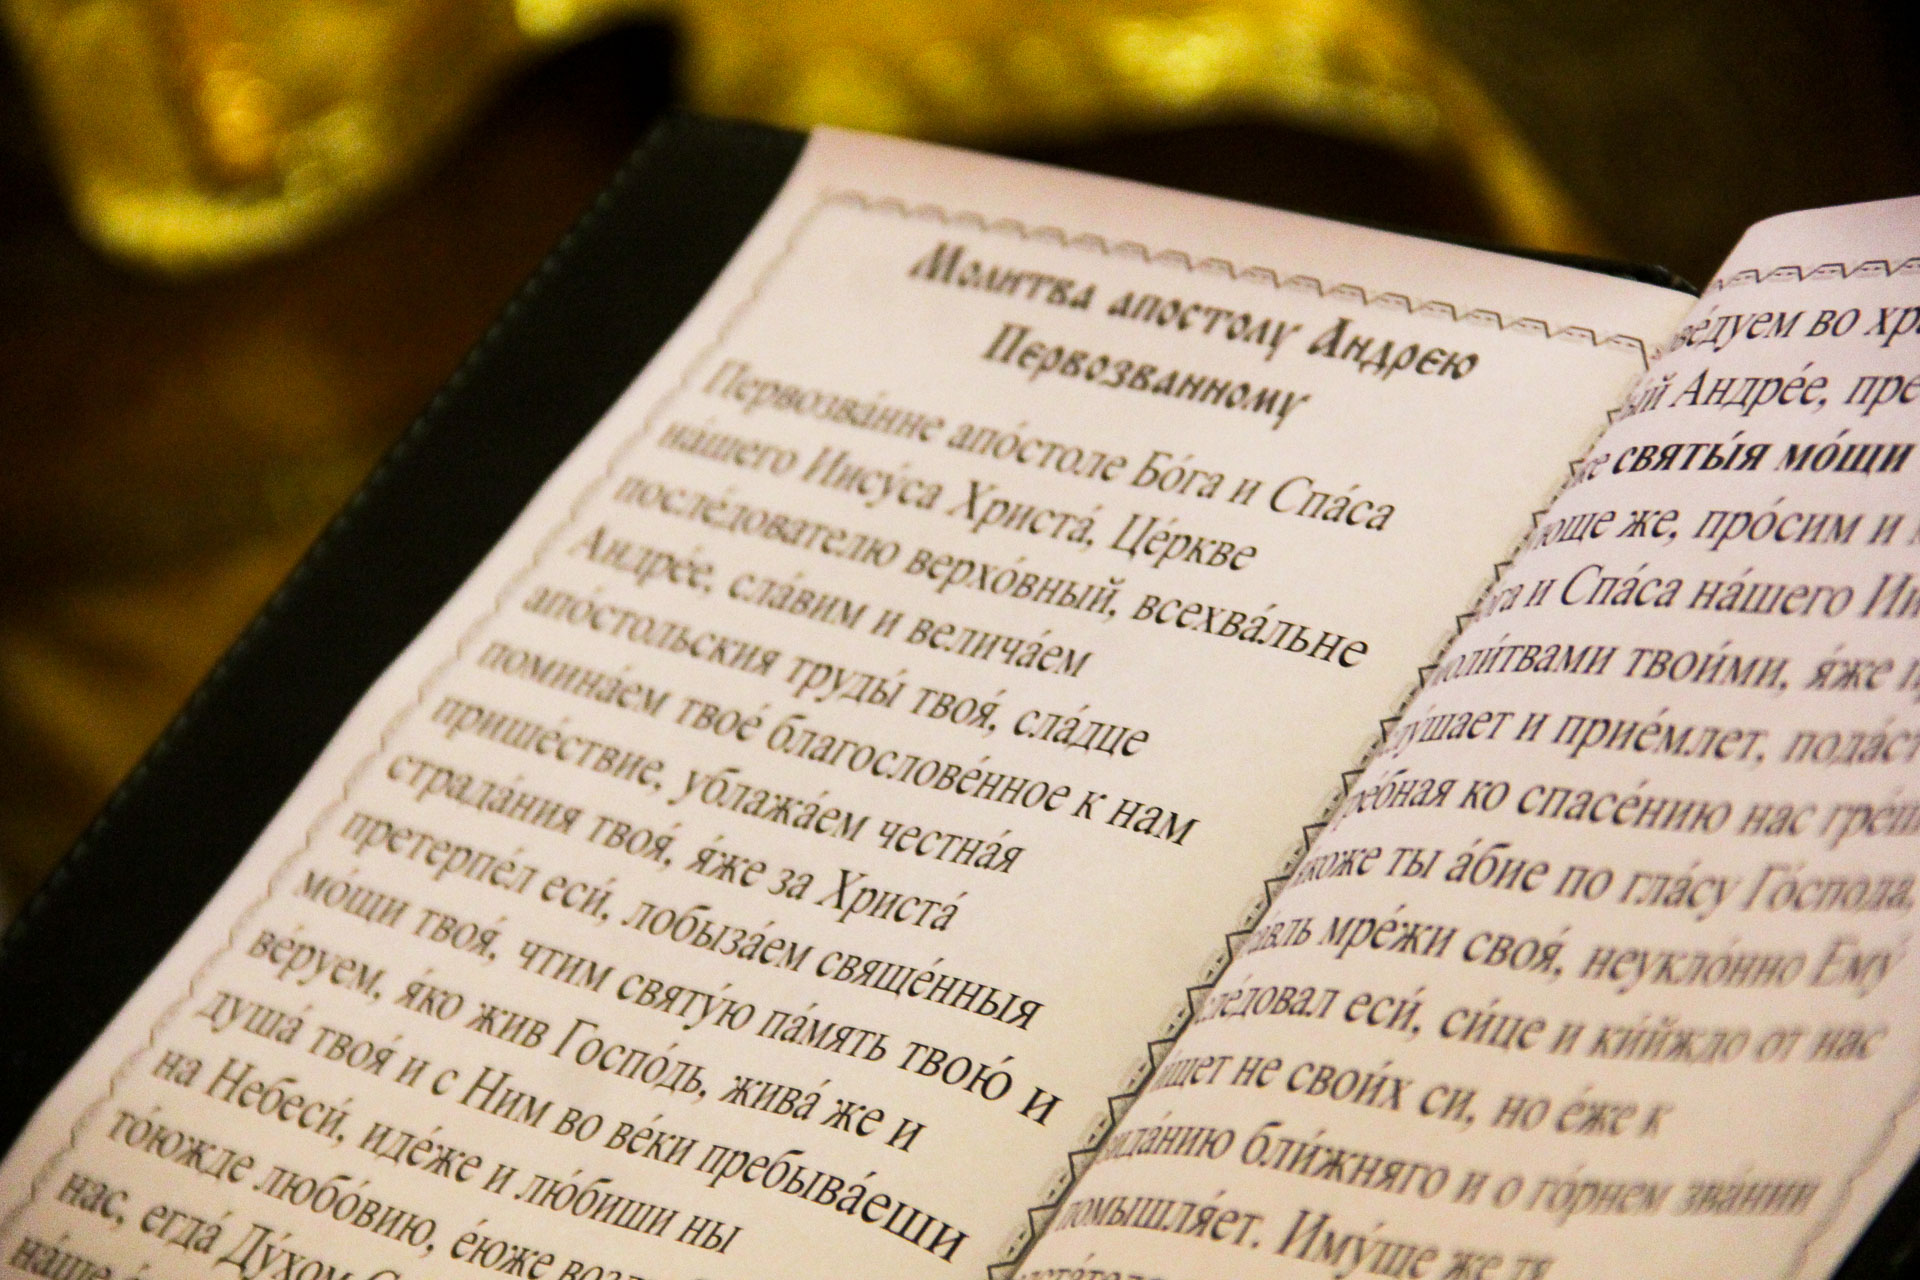 Молитва апостолу Андрею
Первозванному
Первозва́нне апо́столе Бо́га и Спа́са
на́шего Иису́са Христа́, Це́ркве
после́дователю верхо́вный, всехва́льне
Андре́е, сла́вим и велича́ем
апо́стольския труды́ твоя́, сла́дце
помина́ем твое́ благослове́нное к нам
прише́ствие, ублажа́ем честна́я
страда́ния твоя́, я́же за Христа́
претерпе́л еси́, лобыза́ем свяще́нныя
мо́щи твоя́, чтим святу́ю па́мять твою́ и
ве́руем, я́ко жив Госпо́дь, жива́ же и
душа́ твоя́ и с Ним во ве́ки пребыва́еши
на Небеси́, иде́же и лю́биши ны
то́южде любо́вию, е́юже
нас, егда́ Ду́хом
на́ше
во
Андре́е,
святы́я мо́щи
же, про́сим и
и Спа́са на́шего
твои́ми, я́же
и прие́млет,
ко спасе́нию нас
ты а́бие по гла́су Го́спода,
мре́жи своя́, неукло́нно Ему́
еси́, си́це и ки́йждо от нас
не свои́х си, но е́же к
бли́жняго и о го́рнем зва́нии
Иму́ще же тя